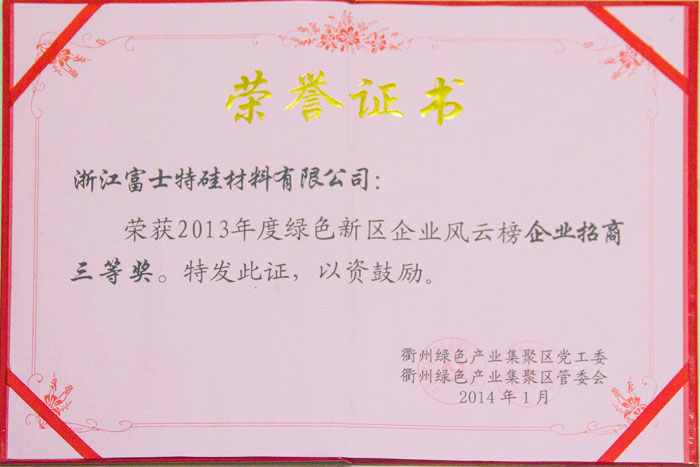 荣誉证书
浙江富士特硅材料有限公司：
荣获2013年度绿色新区企业风云榜企业招商
三等奖。特发此证，以资鼓励。
衢州绿色产业集聚区党工委
衢州绿色产业集聚区管委会
2014年1月